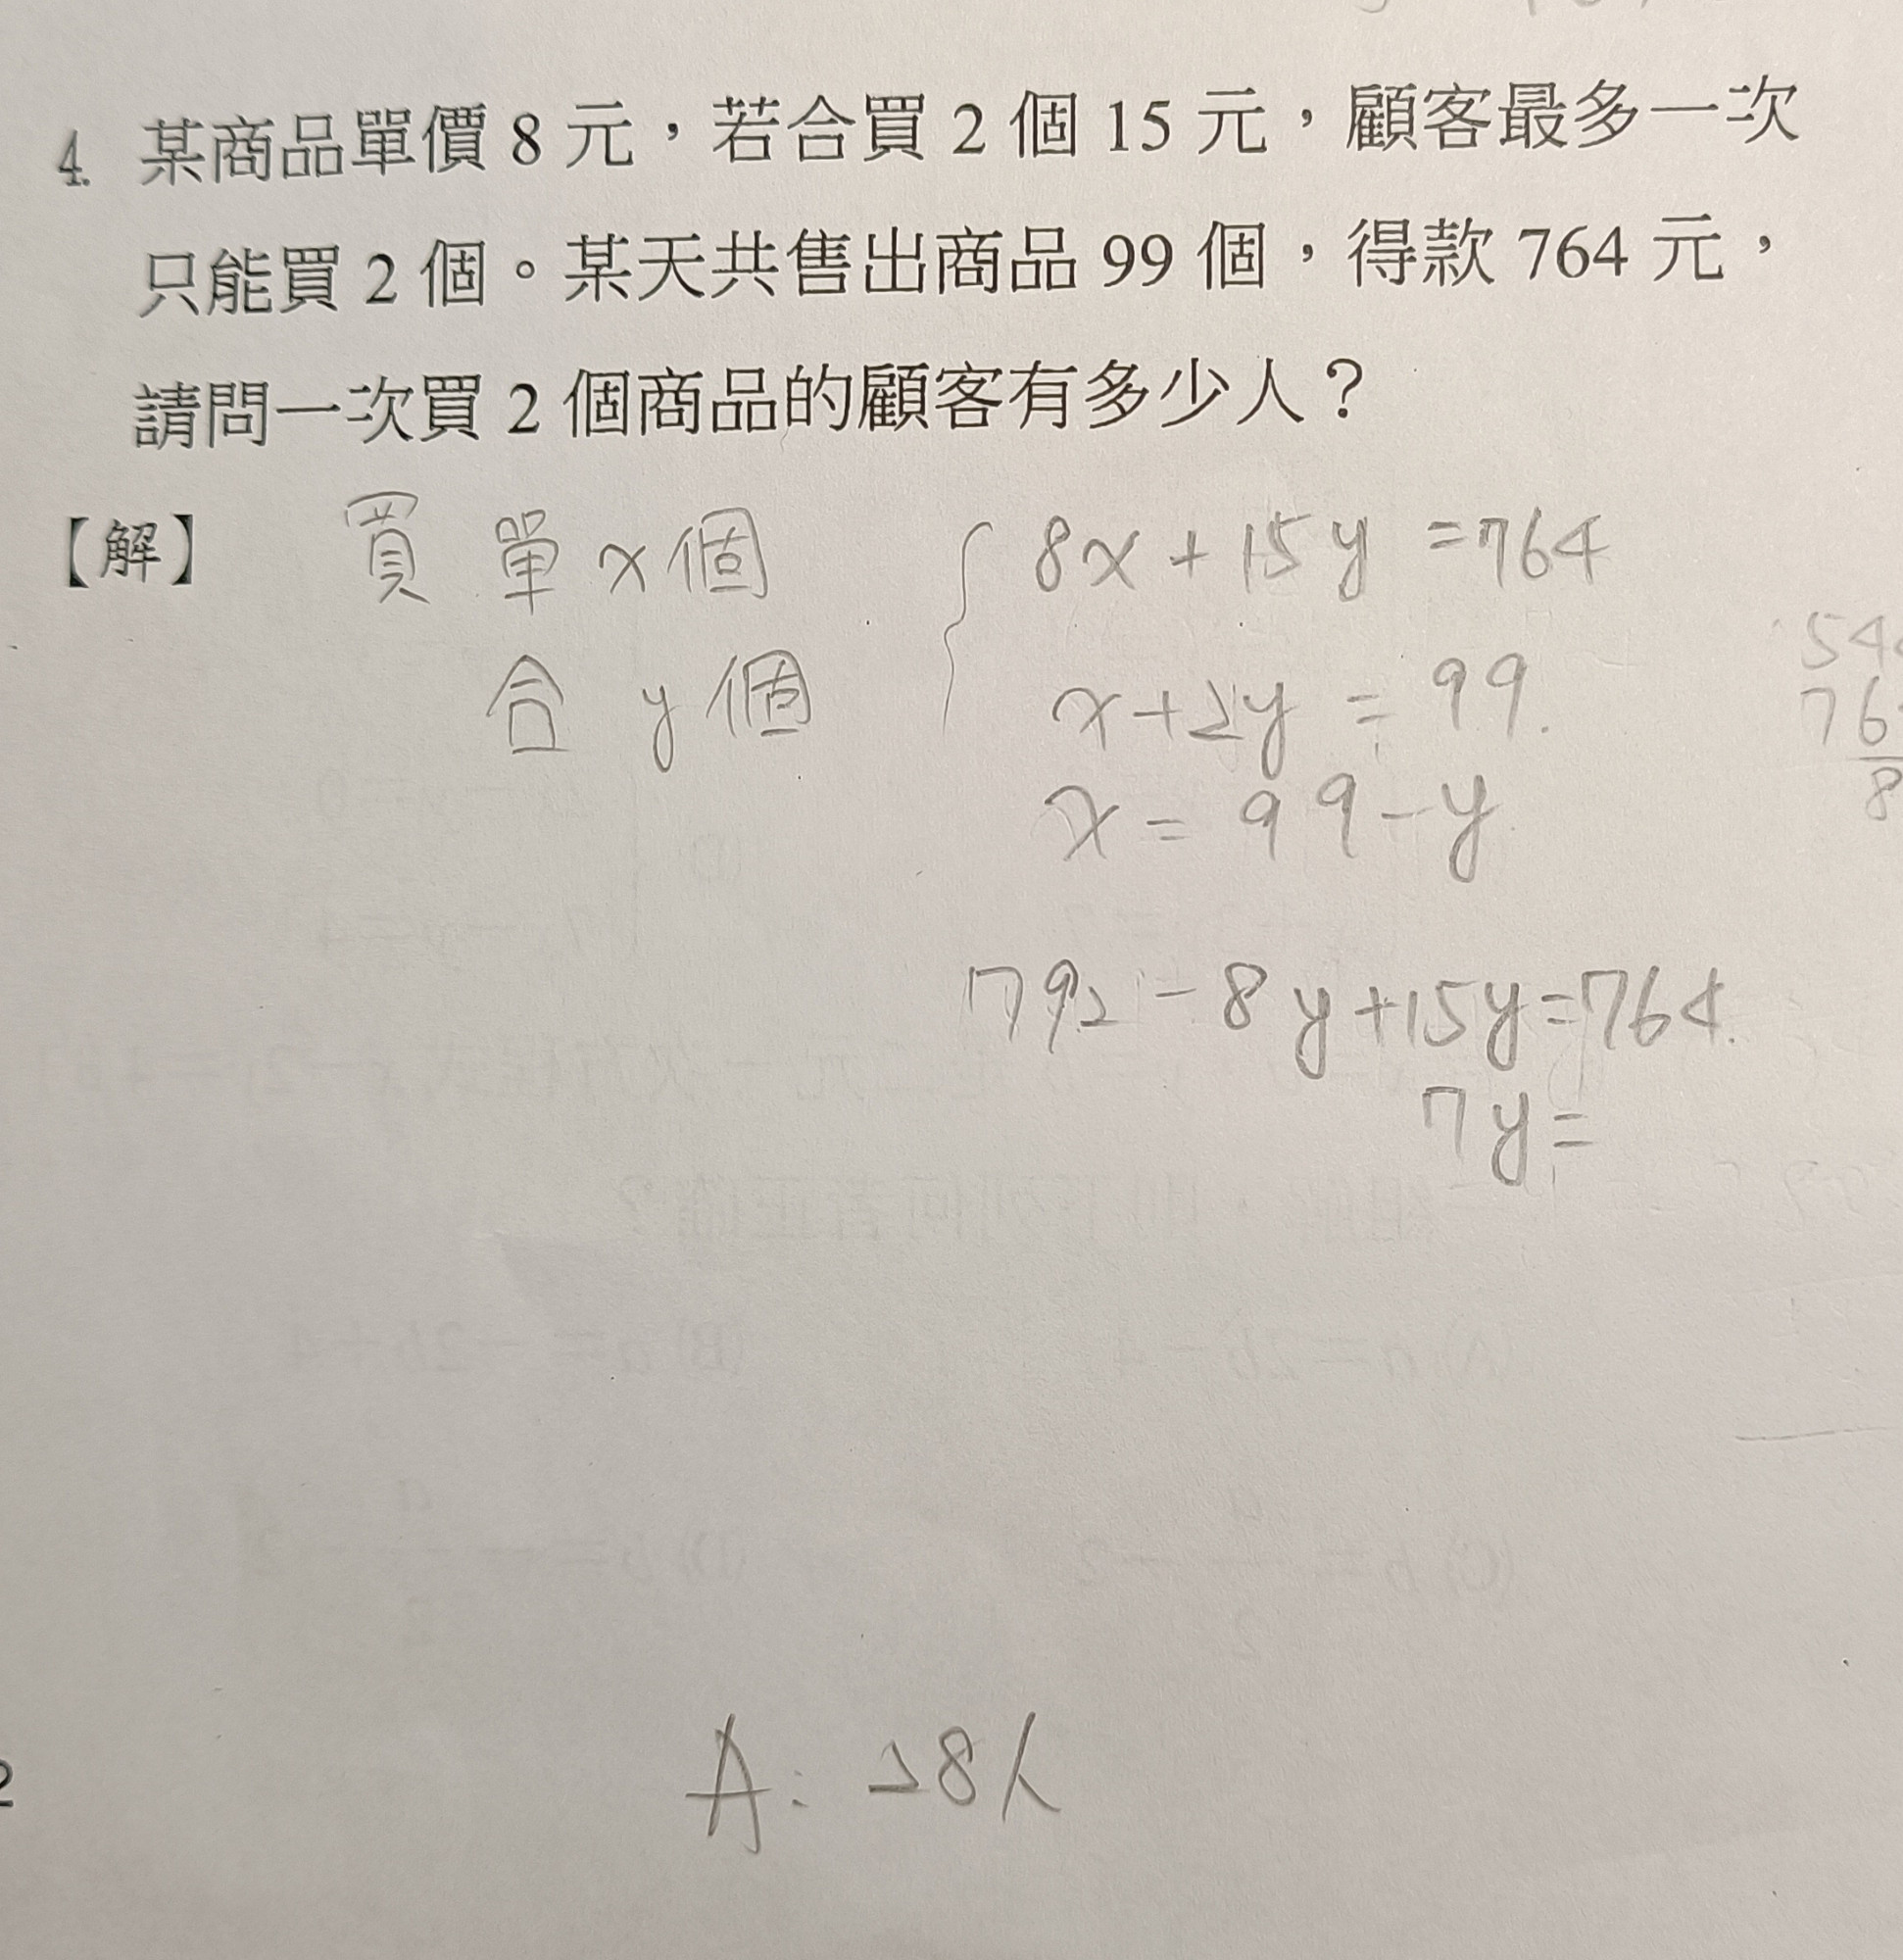 4. 某商品單價 8 元，若合買 2 個 15 元，顧客最多一次
只能買 2 個。某天共售出商品 99 個，得款 764 元，
請問一次買 2 個商品的顧客有多少人？
【解】 買 單 x 個
合 y 個
8x + 15y = 764
x + 2y = 99.
x = 99 - y
792 - 8y + 15y = 764.
7y =
54
76
8
2
A: 28人